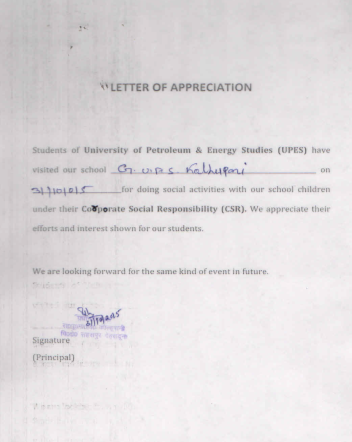 LETTER OF APPRECIATION
Students of University of Petroleum & Energy Studies (UPES) have
visited our school G.U.P.S. on
for doing social activities with our school children
under their Corporate Social Responsibility (CSR). We appreciate their
efforts and interest shown for our students.
We are looking forward for the same kind of event in future.
Signature
(Principal)